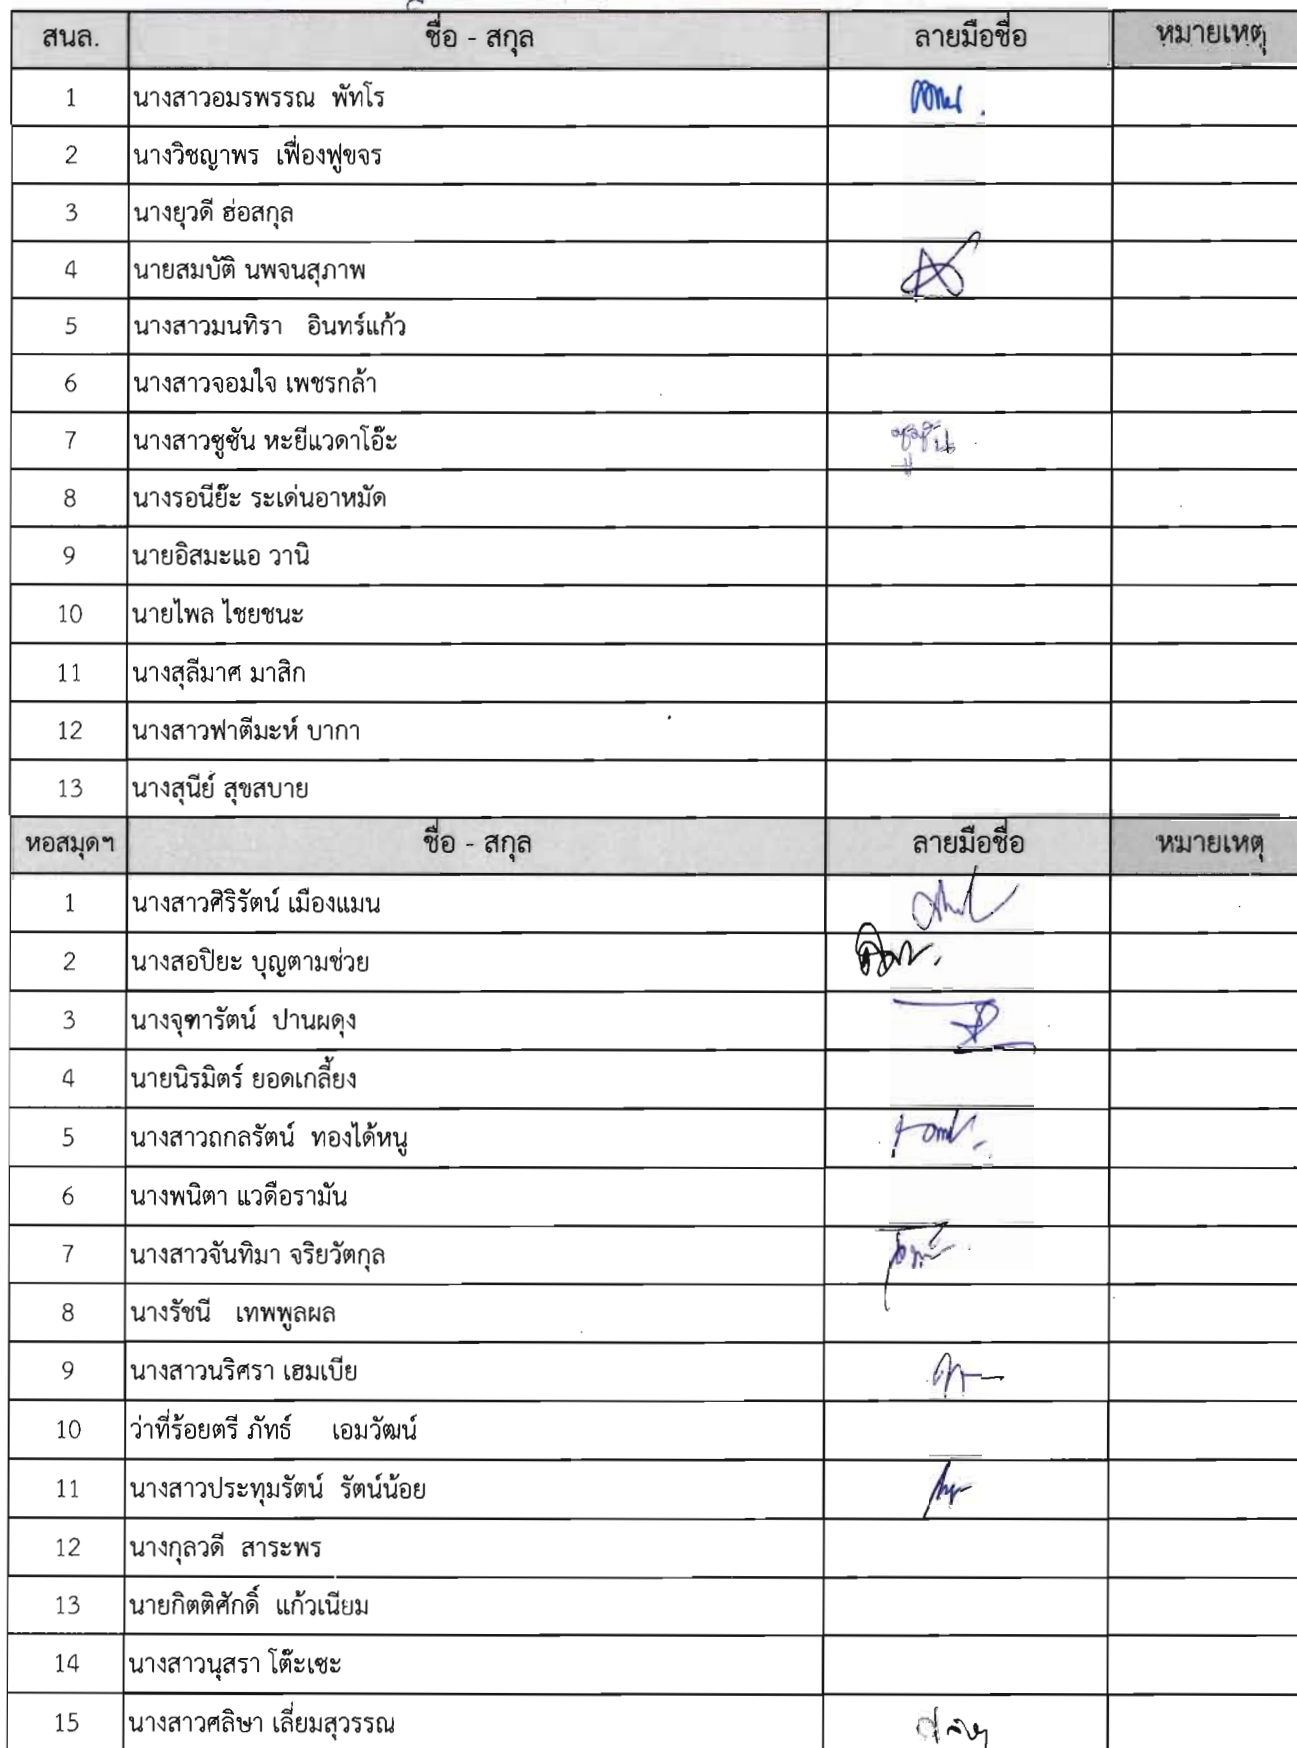 สนล. ชื่อ - สกุล ลายมือชื่อ หมายเหตุ
1 นางสาวอมรพรรณ พัทโร
2 นางวิชญาพร เฟื่องฟูขจร
3 นางยุวดี ฮ่อสกุล
4 นายสมบัติ นพจนสุภาพ
5 นางสาวมนทิรา อินทร์แก้ว
6 นางสาวจอมใจ เพชรกล้า
7 นางสาวซูซัน หะยีแวดาโอ๊ะ ซูซัน
8 นางรอนีย๊ะ ระเด่นอาหมัด
9 นายอิสมะแอ วานิ
10 นายไพล ไชยชนะ
11 นางสุลีมาศ มาสิก
12 นางสาวฟาตีมะห์ บากา
13 นางสุนีย์ สุขสบาย
หอสมุดฯ ชื่อ - สกุล ลายมือชื่อ หมายเหตุ
1 นางสาวศิริรัตน์ เมืองแมน
2 นางสอปิยะ บุญตามช่วย
3 นางจุฑารัตน์ ปานผดุง
4 นายนิรมิตร์ ยอดเกลี้ยง
5 นางสาวถกลรัตน์ ทองได้หนู
6 นางพนิตา แวดือรามัน
7 นางสาวจันทิมา จริยวัตกุล
8 นางรัชนี เทพพูลผล
9 นางสาวนริศรา เฮมเบีย
10 ว่าที่ร้อยตรี ภัทธ์ เอมวัฒน์
11 นางสาวประทุมรัตน์ รัตน์น้อย
12 นางกุลวดี สาระพร
13 นายกิตติศักดิ์ แก้วเนียม
14 นางสาวนุสรา โต๊ะเซะ
15 นางสาวศลิษา เลี่ยมสุวรรณ